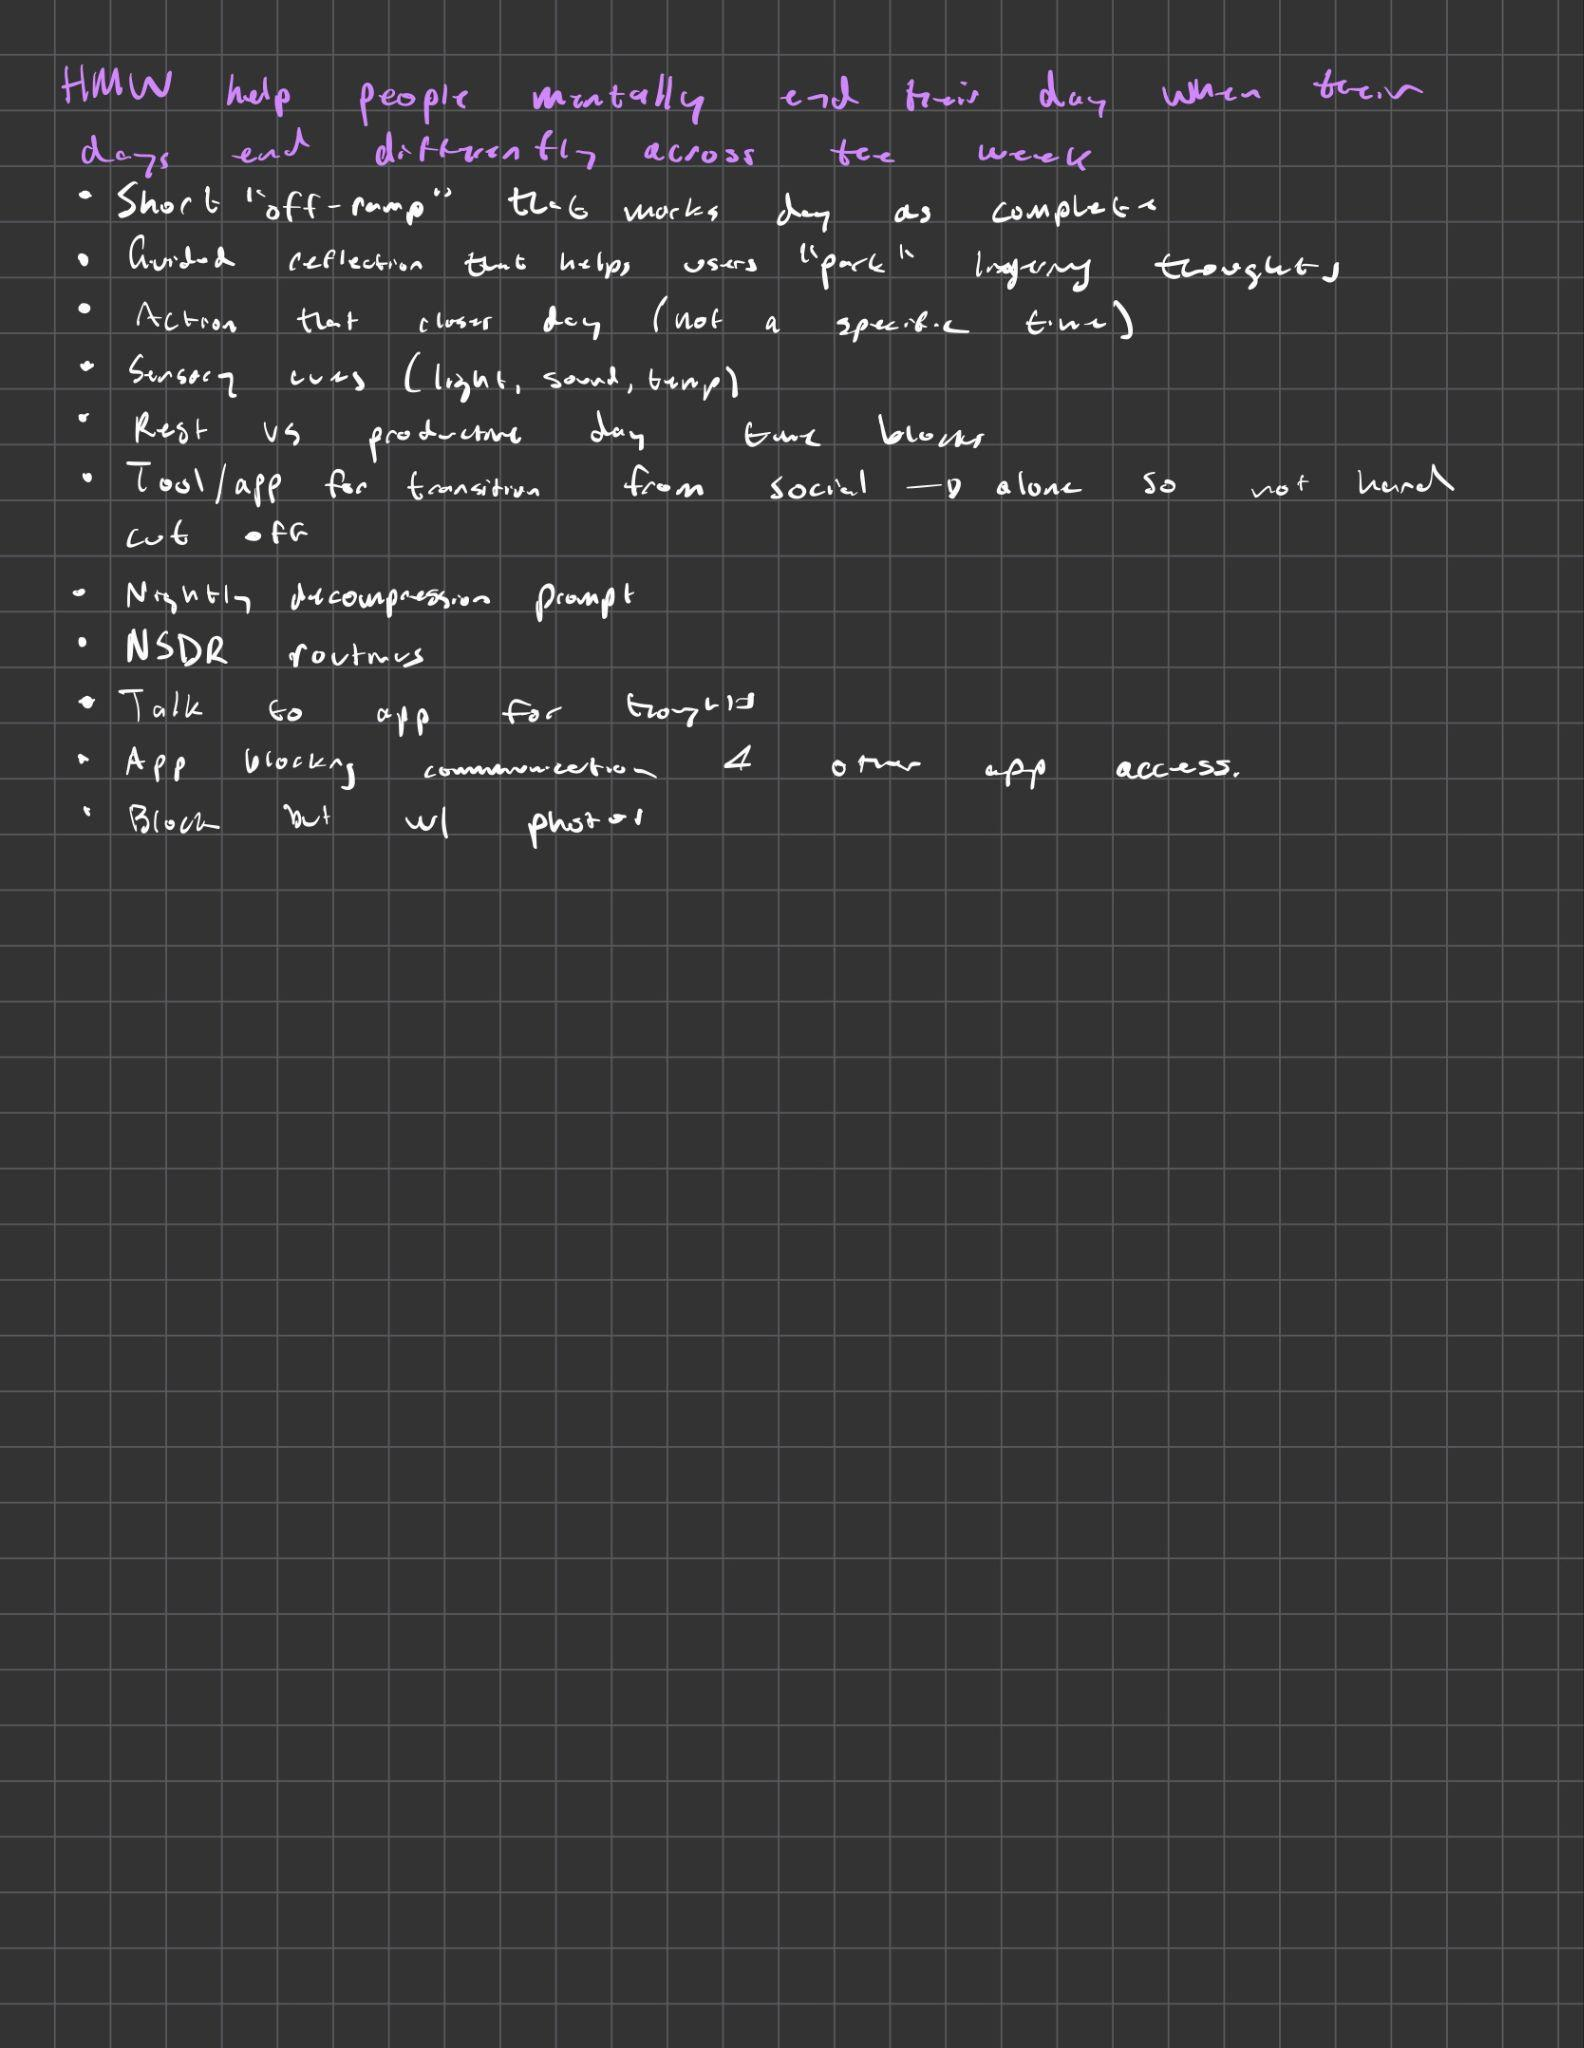 HMW help people mentally end their day when their
days end differently across the week
• Short "off-ramp" that marks day as complete
• Guided reflection that helps users "park" lingering thoughts
• Action that closes day (not a specific time)
• Sensory cues (light, sound, temp)
• Rest vs productive day time blocks
• Tool/app for transition from social → alone so not hard
cut off
• Nightly decompression prompt
• NSDR routines
• Talk to app for thoughts
• App blocking communication & other app access.
• Block but w/ photos